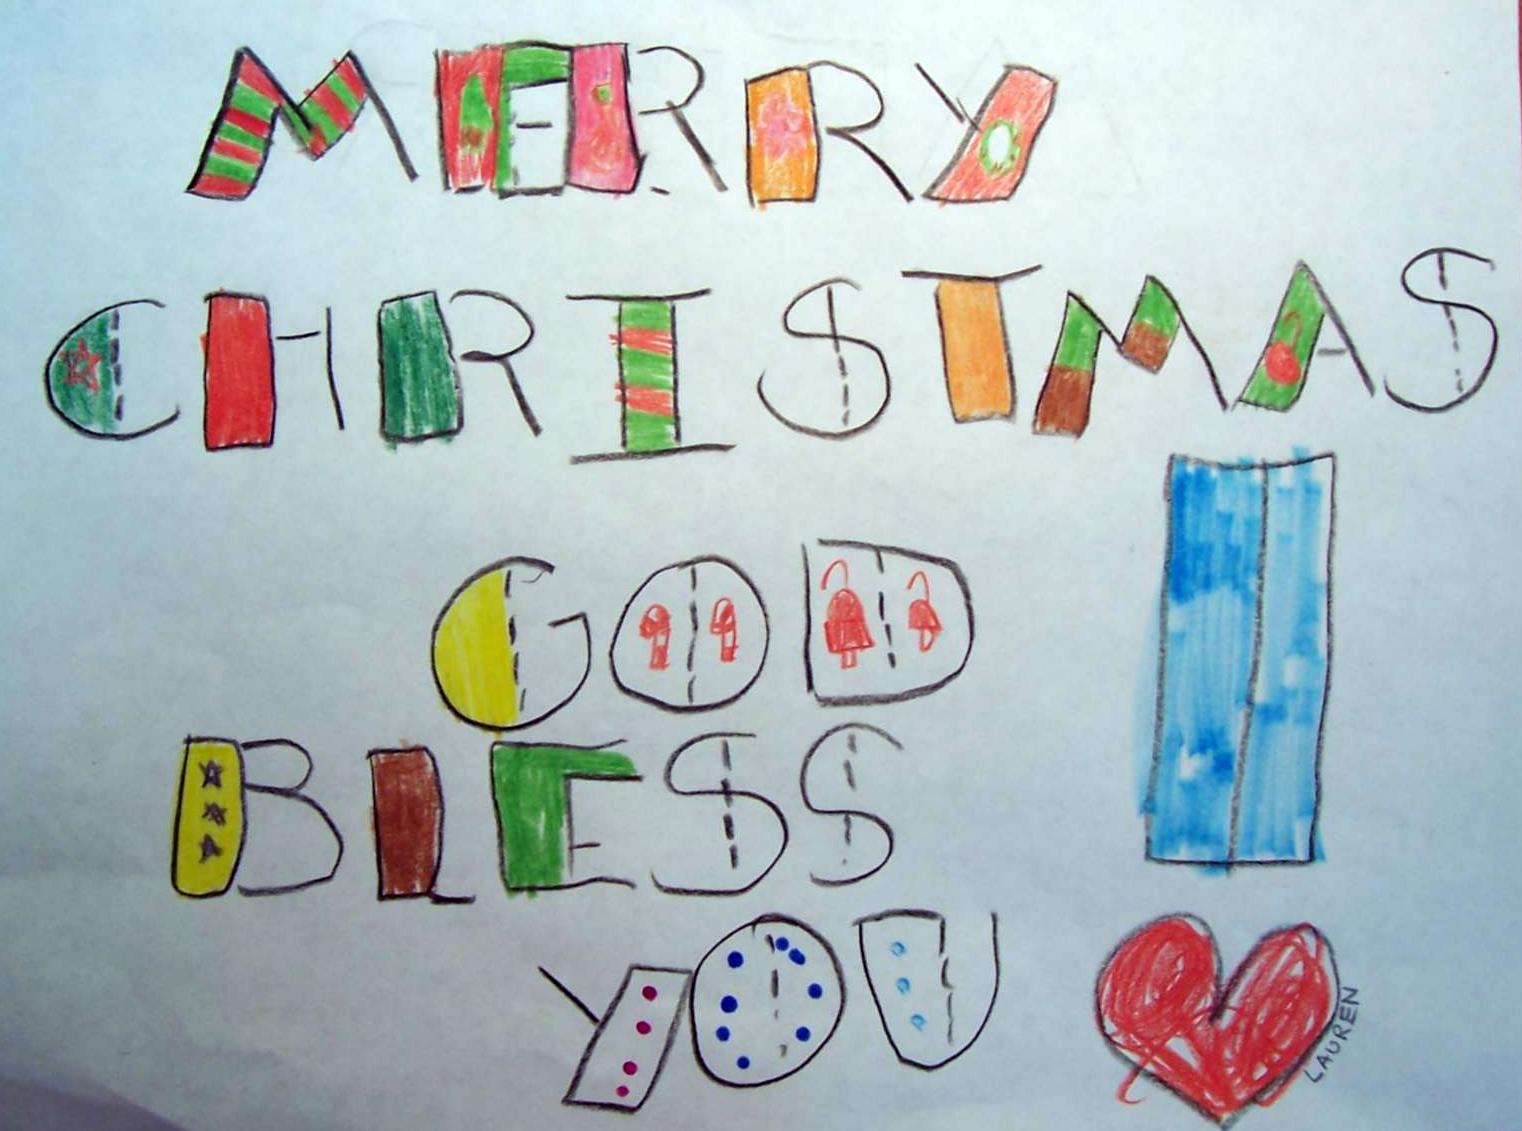 MERRY
CHRISTMAS
GOD
BLESS
YOU
LAUREN